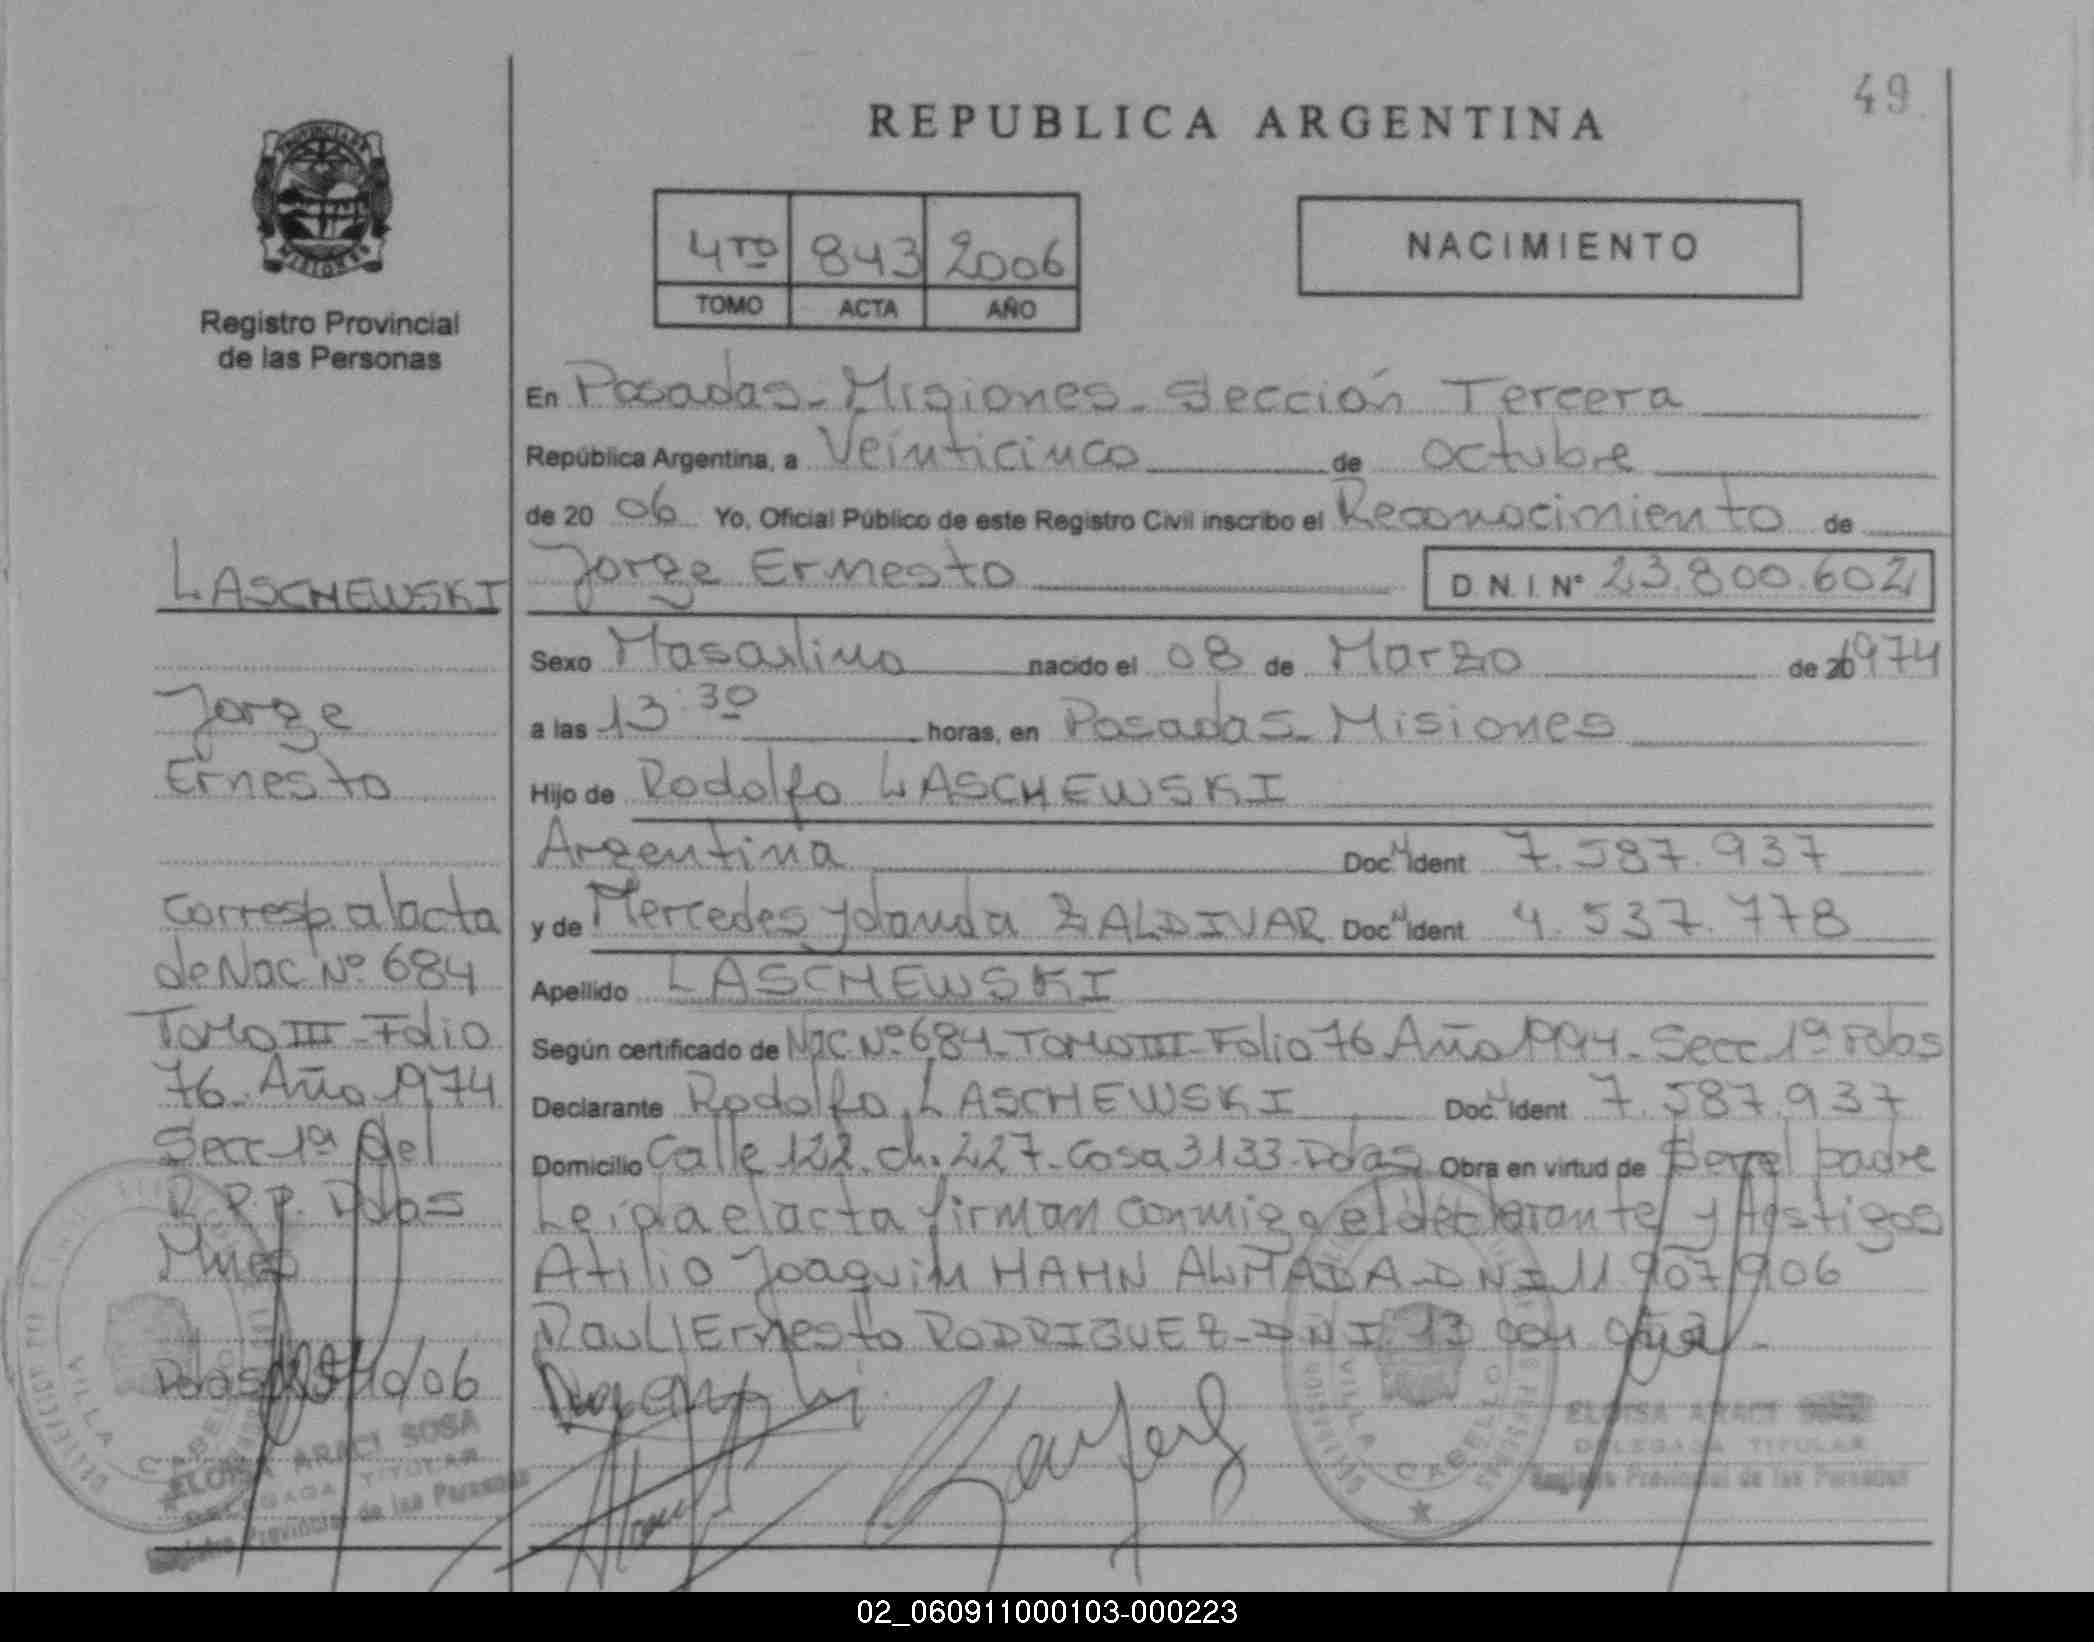 49
REPUBLICA ARGENTINA
PROVINCIA DE
MISIONES
Registro Provincial
de las Personas
4TO 843 2006
TOMO ACTA AÑO
NACIMIENTO
En Posadas - Misiones - Sección Tercera
República Argentina, a Veinticinco de octubre
de 20 06 Yo, Oficial Público de este Registro Civil inscribo el Reconocimiento de
Jorge Ernesto D.N.I. Nº 23.800.602
Sexo Masculino nacido el 08 de Marzo de 20 1974
a las 13:30 horas, en Posadas - Misiones
Hijo de Rodolfo LASCHEWSKI
Argentina Doc. Ident 7.587.937
y de Mercedes Yolanda ZALDIVAR Doc. Ident 4.537.778
Apellido LASCHEWSKI
Según certificado de Nac Nº 684 - Tomo III - Folio 76 Año 1994 - Secc 1ª Pdas
Declarante Rodolfo LASCHEWSKI Doc. Ident 7.587.937
Domicilio Calle 122 - ch. 227 - Casa 3133 - Pdas Obra en virtud de Ser el padre
Leída el acta firman conmigo el declarante y testigos
Atilio Joaquin HAHN ALMADA - DNI 11 907 906
Raul Ernesto RODRIGUEZ - DNI 13
LASCHEWSKI
Jorge
Ernesto
Corresp. al acta
de Nac Nº 684
Tomo III - Folio
76 - Año 1974
Secc 1ª del
R.P.P. Pdas
Mnes
Pdas 25/10/06
VILLA CABELLO
ELOISA ARACI SOSA
DELEGADA TITULAR
Registro Provincial de las Personas
VILLA CABELLO
ELOISA ARACI SOSA
DELEGADA TITULAR
Registro Provincial de las Personas
02_060911000103-000223